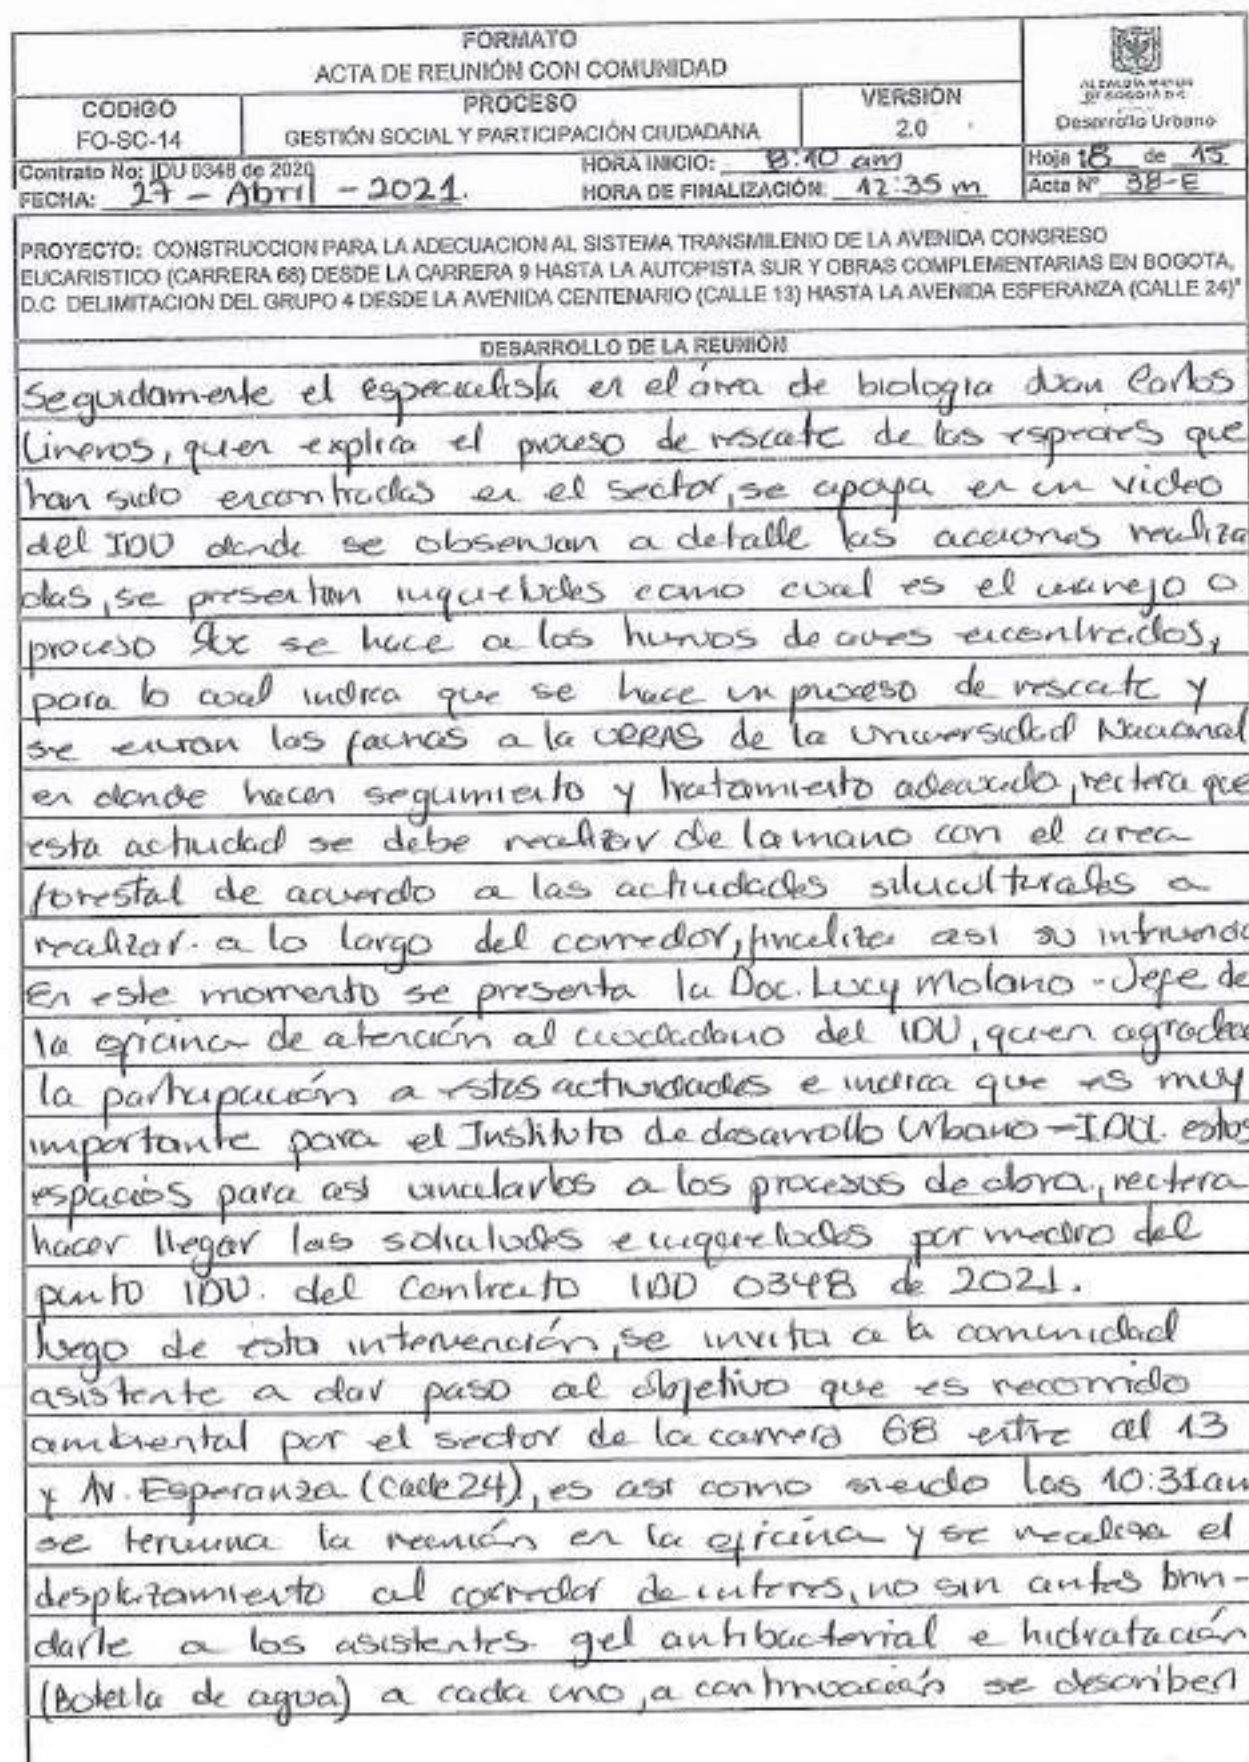 FORMATO
ACTA DE REUNIÓN CON COMUNIDAD
CÓDIGO
FO-SC-14
PROCESO
GESTIÓN SOCIAL Y PARTICIPACIÓN CIUDADANA
VERSIÓN
2.0
ALCALDÍA MAYOR
DE BOGOTÁ D.C.
Desarrollo Urbano
Contrato No: IDU 0348 de 2020
FECHA: 27 - Abril - 2021.
HORA INICIO: 8:10 am
HORA DE FINALIZACIÓN: 12:35 m
Hoja de 15
Acta Nº 38-E
PROYECTO: CONSTRUCCION PARA LA ADECUACION AL SISTEMA TRANSMILENIO DE LA AVENIDA CONGRESO
EUCARISTICO (CARRERA 68) DESDE LA CARRERA 9 HASTA LA AUTOPISTA SUR Y OBRAS COMPLEMENTARIAS EN BOGOTA,
D.C DELIMITACION DEL GRUPO 4 DESDE LA AVENIDA CENTENARIO (CALLE 13) HASTA LA AVENIDA ESPERANZA (CALLE 24)"
DESARROLLO DE LA REUNIÓN
Seguidamente el especialista en el área de biologia Juan Carlos
Lineros, quien explica el proceso de rescate de las especies que
han sido encontradas en el sector, se apoya en un video
del IDU donde se observan a detalle las acciones realiza
das, se presentan inquietudes como cual es el manejo o
proceso que se hace a los huevos de aves encontrados,
para lo cual indica que se hace un proceso de rescate y
se envian las faunas a la URRAS de la Universidad Nacional
en donde hacen seguimiento y tratamiento adecuado, reitera que
esta actividad se debe realizar de la mano con el area
forestal de acuerdo a las actividades silviculturales a
realizar. a lo largo del corredor, finaliza asi su
En este momento se presenta la Doc. Lucy Molano - Jefe de
la oficina de atención al ciudadano del IDU, quien agradece
la participación a estas actividades e indica que es muy
importante para el Instituto de desarrollo Urbano - IDU. estos
espacios para asi vincularlos a los procesos de obra, reitera
hacer llegar las solicitudes e inquietudes por medio del
punto IDU. del Contrato IDU 0348 de 2021.
luego de esta intervención, se invita a la comunidad
asistente a dar paso al objetivo que es recorrido
ambiental por el sector de la carrera 68 entre cll 13
y Av. Esperanza (calle 24), es asi como siendo las 10:31am
se termina la reunión en la oficina y se realiza el
desplazamiento al corredor de interes, no sin antes brin-
darle a los asistentes. gel antibacterial e hidratación
(Botella de agua) a cada uno, a continuación se describen